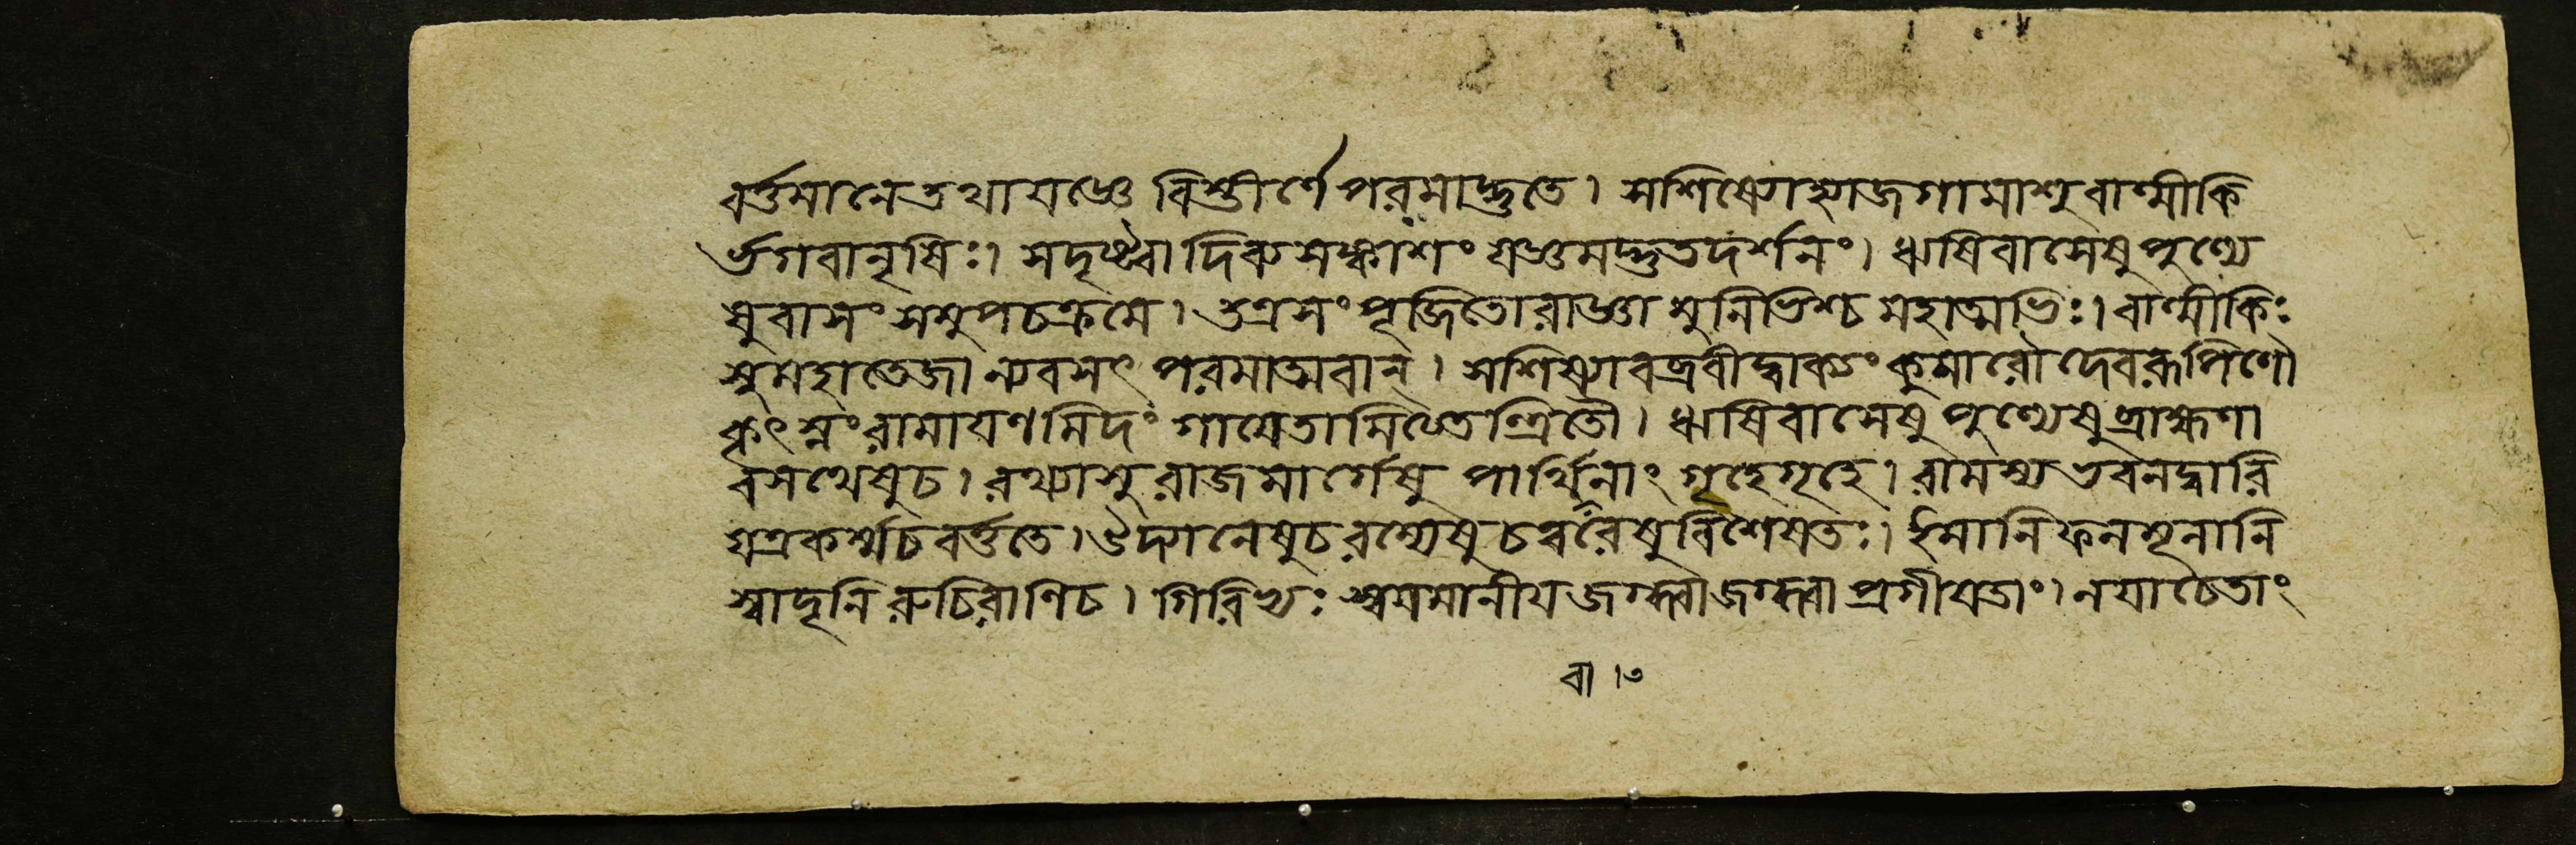 বর্ত্তমানে তথা যজ্ঞে বিস্তীর্ণে পরমাদ্ভুতে। সশিষ্যোহ্যাজগামাশু বাল্মীকি
র্ভগবানৃষিঃ। স দৃষ্ট্বা দিব্য সঙ্কাশং যজ্ঞমদ্ভুতদর্শনং। ঋষিবাসেষু পুণ্যে
ষু বাসং সমুপচক্রমে। তত্র সংপূজিতো রাজ্ঞা মুনিভিশ্চ মহাত্মভিঃ। বাল্মীকিঃ
সুমহাতেজা ন্যবসৎ পরমাত্মবান্। স শিষ্যাবব্রবীদ্বাক্যং কুমারৌ দেবরূপিণৌ
কৃৎস্নং রামায়ণমিদং গায়েতামিত্যতন্দ্রিতৌ। ঋষিবাসেষু পুণ্যেষু ব্রাহ্মণা
বসথেষু চ। রথ্যাসু রাজমার্গেষু পার্থিনাং গৃহে গৃহে। রামস্য ভবনদ্বারি
যত্র কর্ম্ম চ বর্ত্ততে। ঔদ্যানেষু চ রম্যেষু চত্বরেষু বিশেষতঃ। ইমানি ফলমূলানি
স্বাদূনি রুচিরাণি চ। গিরিভ্যঃ স্বয়মানীয় জগ্ধ্বা জগ্ধ্বা প্রগীয়তাং। ন যাচেতাং
বা।৩